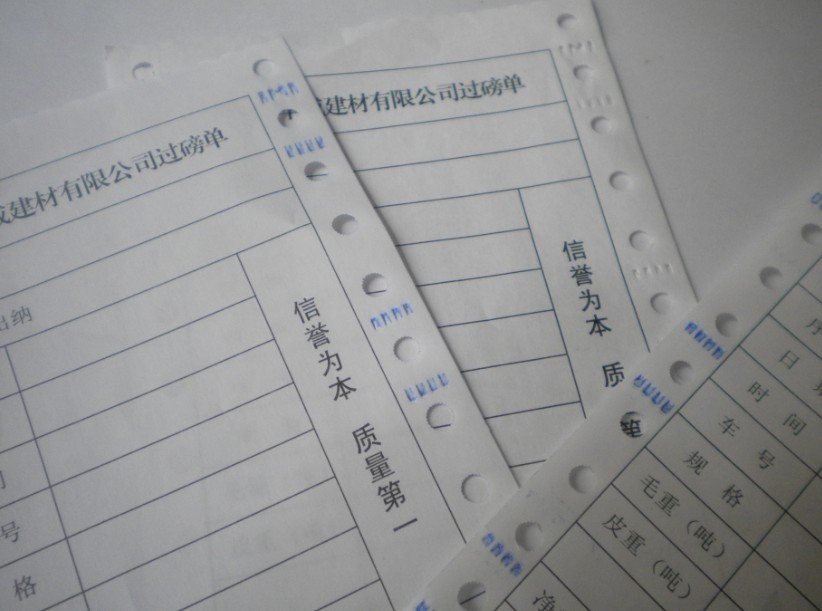 建材有限公司过磅单
出纳
信誉为本 质量第一
号
格
建材有限公司过磅单
信誉为本 质
日
时间
车号
规格
毛重（吨）
皮重（吨）
净